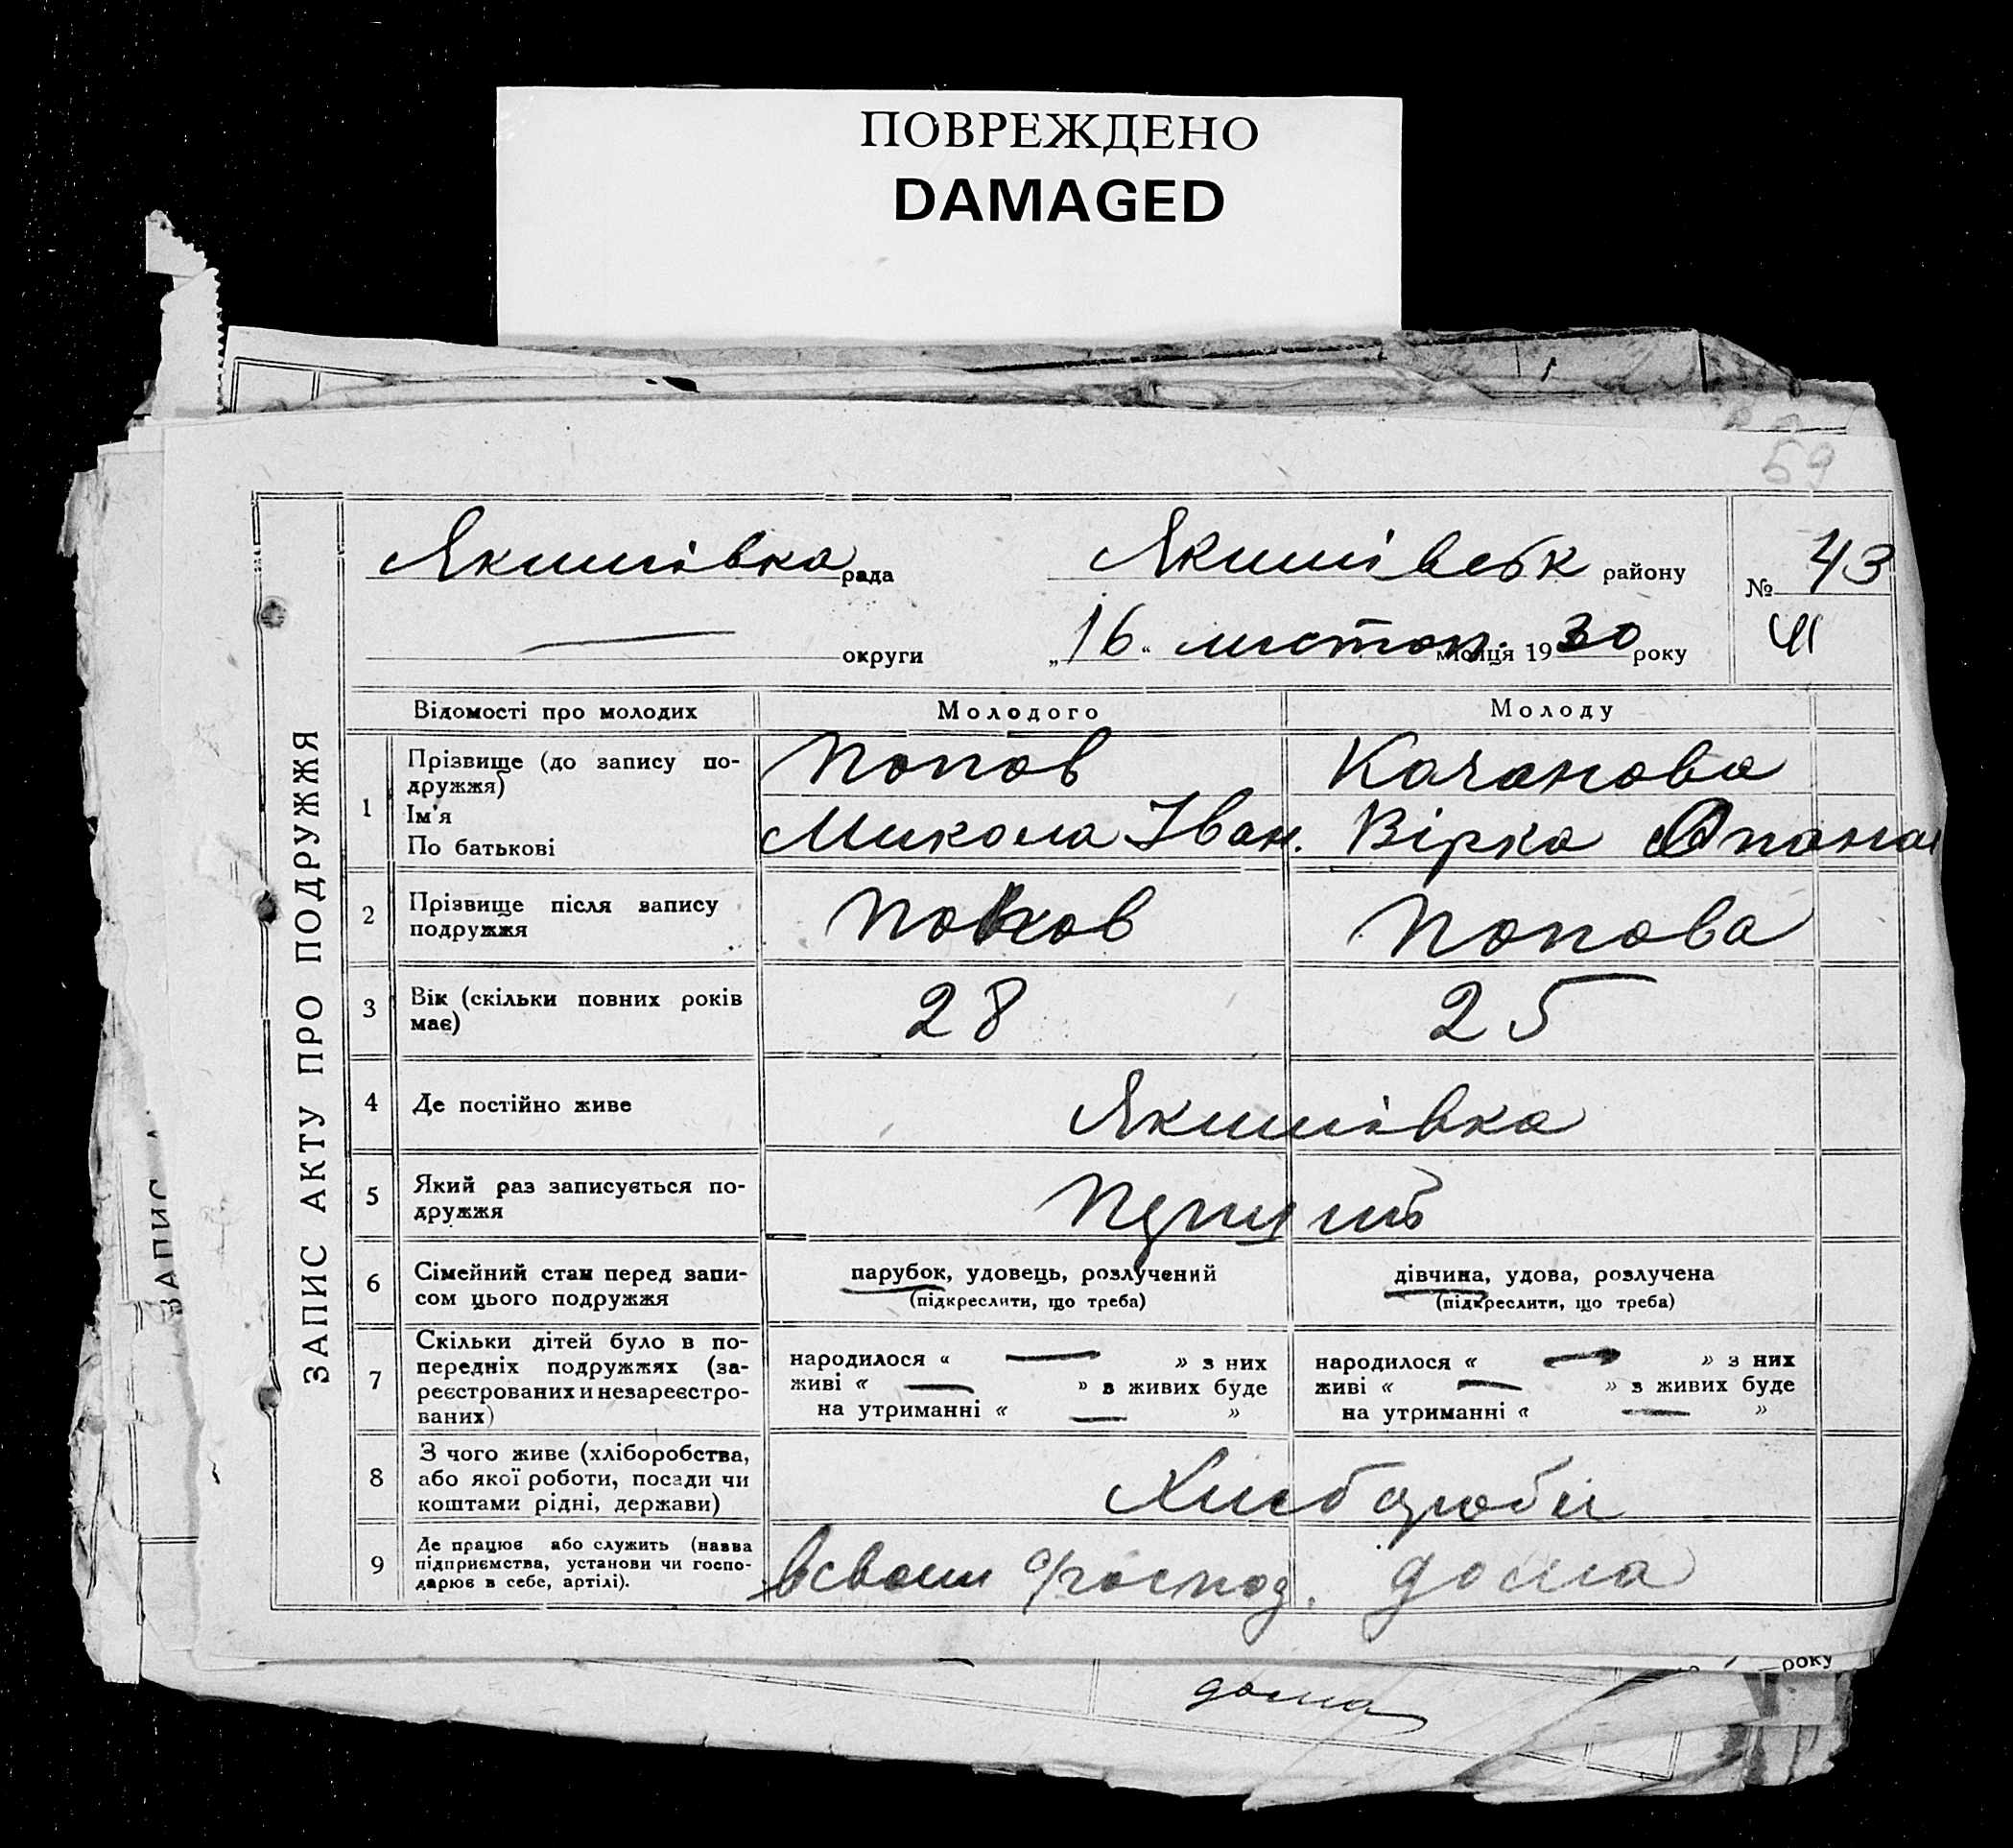 ПОВРЕЖДЕНО
DAMAGED
59
ЗАПИС АКТУ ПРО ПОДРУЖЖЯ
Якимівка рада Якимівськ району № 43
округи „16“ листоп. місяця 1930 року
Відомості про молодих Молодого Молоду
1 Прізвище (до запису по-
дружжя) Попов Качанова
Ім'я
По батькові Микола Іван. Вірка Опанас
2 Прізвище після запису
подружжя Попов Попова
3 Вік (скільки повних років
має) 28 25
4 Де постійно живе Якимівка
5 Який раз записується по-
дружжя
6 Сімейний стан перед запи-
сом цього подружжя парубок, удовець, розлучений дівчина, удова, розлучена
(підкреслити, що треба) (підкреслити, що треба)
7 Скільки дітей було в по-
передніх подружжях (за-
реєстрованих и незареєстро-
ваних)
народилося « » з них народилося « » з них
живі « » з живих буде живі « » з живих буде
на утриманні « » на утриманні « »
8 З чого живе (хліборобства,
або якої роботи, посади чи
коштами рідні, держави)
9 Де працює або служить (назва
підприємства, установи чи госпо-
дарює в себе, артілі). господ. дома
ЗАПИС
року
дома